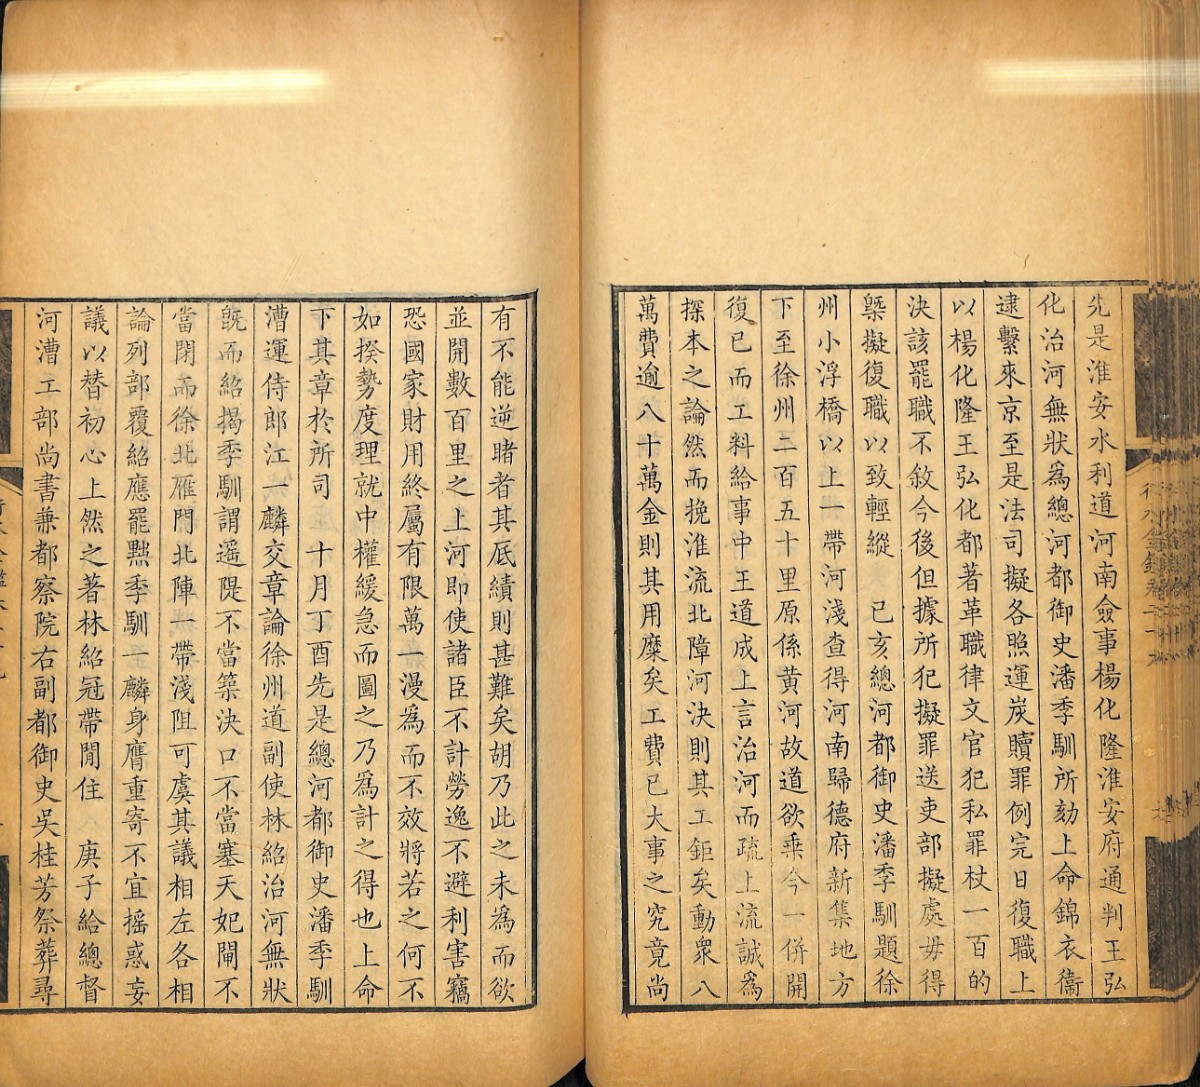 先是淮安水利道河南僉事楊化隆淮安府通判王弘
化治河無狀為總河都御史潘季馴所劾上命錦衣衞
逮繫來京至是法司擬各照運炭贖罪例完日復職上
以楊化隆王弘化都著革職律文官犯私罪杖一百的
決該罷職不敘今後但據所犯擬罪送吏部擬處毋得
槩擬復職以致輕縱　已亥總河都御史潘季馴題徐
州小浮橋以上一帶河淺查得河南歸德府新集地方
下至徐州二百五十里原係黃河故道欲乘今一併開
復已而工料給事中王道成上言治河而疏上流誠為
探本之論然而挽淮流北障河決則其工鉅矣動衆八
萬費逾八十萬金則其用糜矣工費已大事之究竟尚
有不能逆睹者其厎績則甚難矣胡乃此之未為而欲
並開數百里之上河即使諸臣不計勞逸不避利害竊
恐國家財用終屬有限萬一漫為而不效將若之何不
如揆勢度理就中權緩急而圖之乃為計之得也上命
下其章於所司　十月丁酉先是總河都御史潘季馴
漕運侍郎江一麟交章論徐州道副使林紹治河無狀
既而紹揭季馴謂遥隄不當築決口不當塞天妃閘不
當閉而徐北雁門北陣一帶淺阻可虞其議相左各相
論列部覆紹應罷黜季馴一麟身膺重寄不宜搖惑妄
議以替初心上然之著林紹冠帶閒住　庚子給總督
河漕工部尚書兼都察院右副都御史吳桂芳祭葬尋